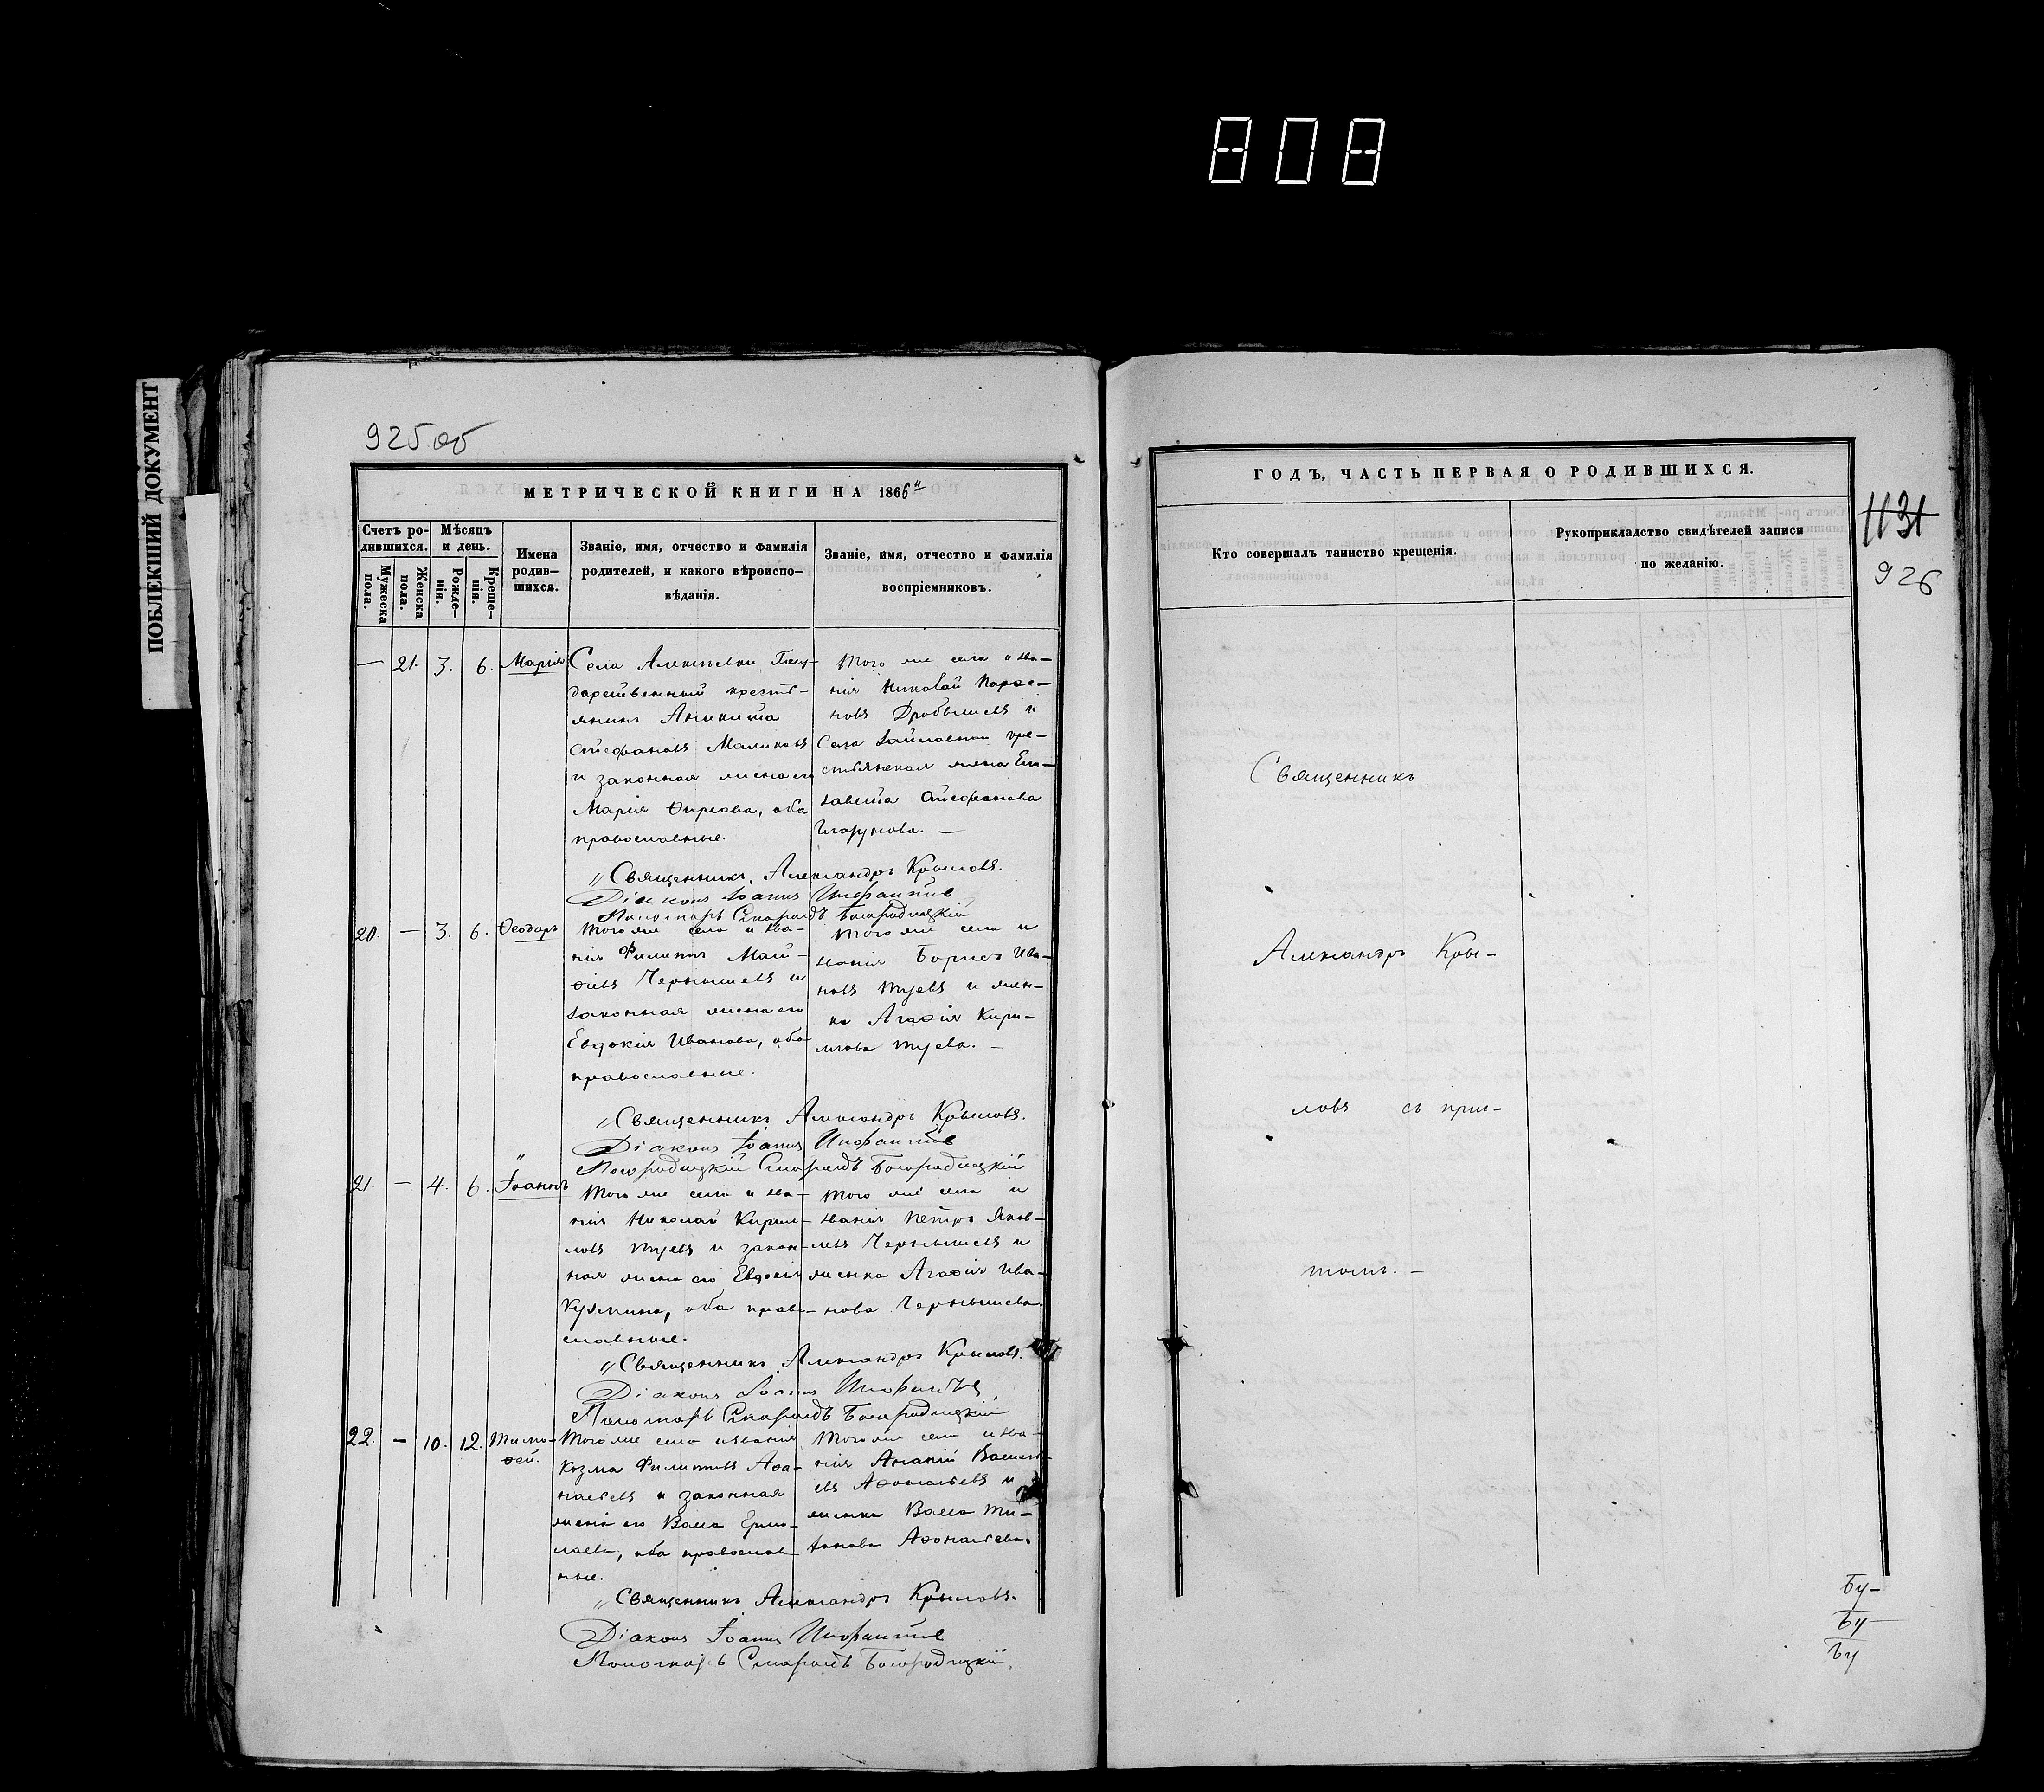 808
ПОБЛЕКШИЙ ДОКУМЕНТ
925 об
МЕТРИЧЕСКОЙ КНИГИ НА 1866й
Счетъ ро-
дившихся.
Мужеска пола.
Женска пола.
Мѣсяцъ
и день.
Рожде-
нія.
Креще-
нія.
Имена
родив-
шихся.
Званіе, имя, отчество и фамилія
родителей, и какого вѣроиспо-
вѣданія.
Званіе, имя, отчество и фамилія
воспріемниковъ.
— 21. 3. 6. Марія
Села Алексѣевки Госу-
дарственный кресть-
янинъ Аникита
Стефановъ Маликовъ
и законная жена его
Марія, оба
православные.
Того же села и зва-
нія Николай
новъ Дробышевъ и
Села кре-
стьянская жена Ели-
завета Стефанова
„Священникъ Александръ Крыловъ.
Діаконъ Іоаннъ Инфантьевъ
Пономарь Смарагдъ Богородицкій
20. — 3. 6. Ѳеодоръ
Того же села и зва-
нія Филиппъ Мат-
ѳіевъ Чернышевъ и
законная жена его
Евдокія Иванова, оба
православные.
Того же села и
званія Борисъ Ива-
новъ и жен-
ка Агаѳія Кири-
лова
„Священникъ Александръ Крыловъ.
Діаконъ Іоаннъ Инфантьевъ
Смарагдъ Богородицкій
21. — 4. 6. Іоаннъ
Того же села и зва-
нія Николай Кирил-
ловъ и закон-
ная жена его Евдокія
Кузмина, оба право-
славные.
Того же села и
званія Петръ Яков-
левъ Чернышевъ и
женка Агаѳія Ива-
нова Чернышева.
„Священникъ Александръ Крыловъ.
Діаконъ Іоаннъ Инфантьевъ
Пономарь Смарагдъ Богородицкій
22. — 10. 12. Тимо-
ѳей.
Того же села и званія
Козма Филиповъ Аѳа-
насьевъ и законная
жена его Васса Ермо-
лаева, оба православ-
ные.
Того же села и зва-
нія Ананій Василь-
евъ Аѳонасьевъ и
женка Васса
Аѳонасьева.
„Священникъ Александръ Крыловъ.
Діаконъ Іоаннъ Инфантьевъ
Пономарь Смарагдъ Богородицкій.
ГОДЪ, ЧАСТЬ ПЕРВАЯ О РОДИВШИХСЯ.
Кто совершалъ таинство крещенія.
Рукоприкладство свидѣтелей записи
по желанію.
1131
926
Священникъ
Александръ Кры-
ловъ съ прич-
томъ. —
Бу-
Бу-
Бу